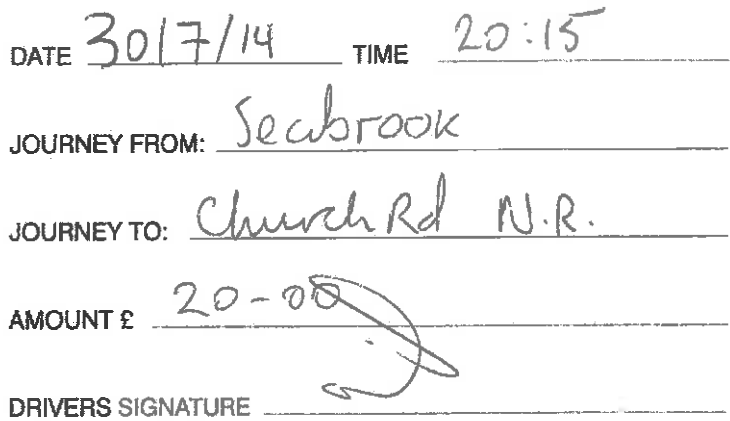 DATE 30/7/14 TIME 20:15
JOURNEY FROM: Seabrook
JOURNEY TO: Church Rd N.R.
AMOUNT £ 20-00
DRIVERS SIGNATURE